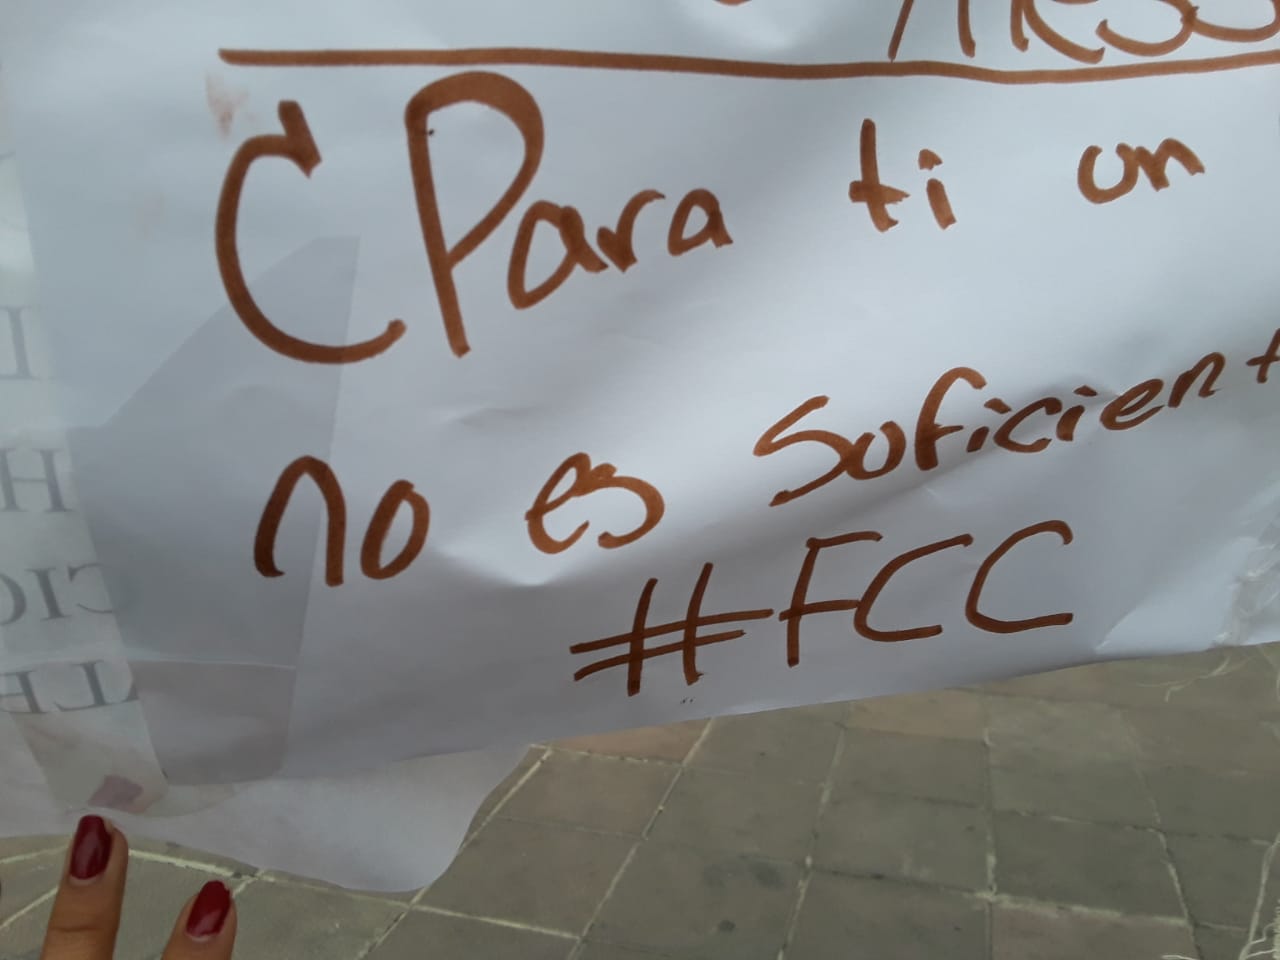 C Para ti un
no es suficient
#FCC